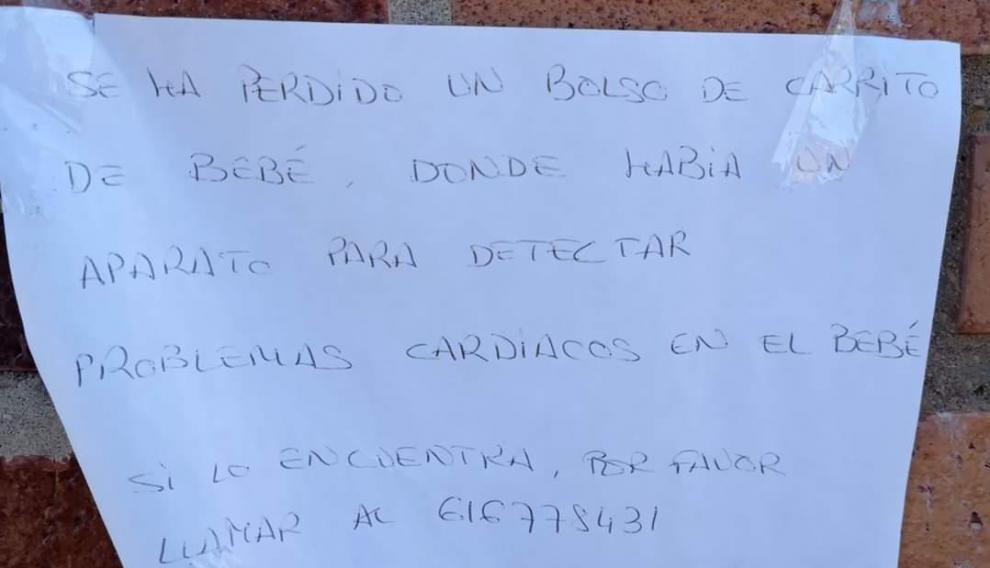 SE HA PERDIDO UN BOLSO DE CARRITO
DE BEBÉ, DONDE HABIA UN
APARATO PARA DETECTAR
PROBLEMAS CARDIACOS EN EL BEBÉ
SI LO ENCUENTRA, POR FAVOR
LLAMAR AL 616778431